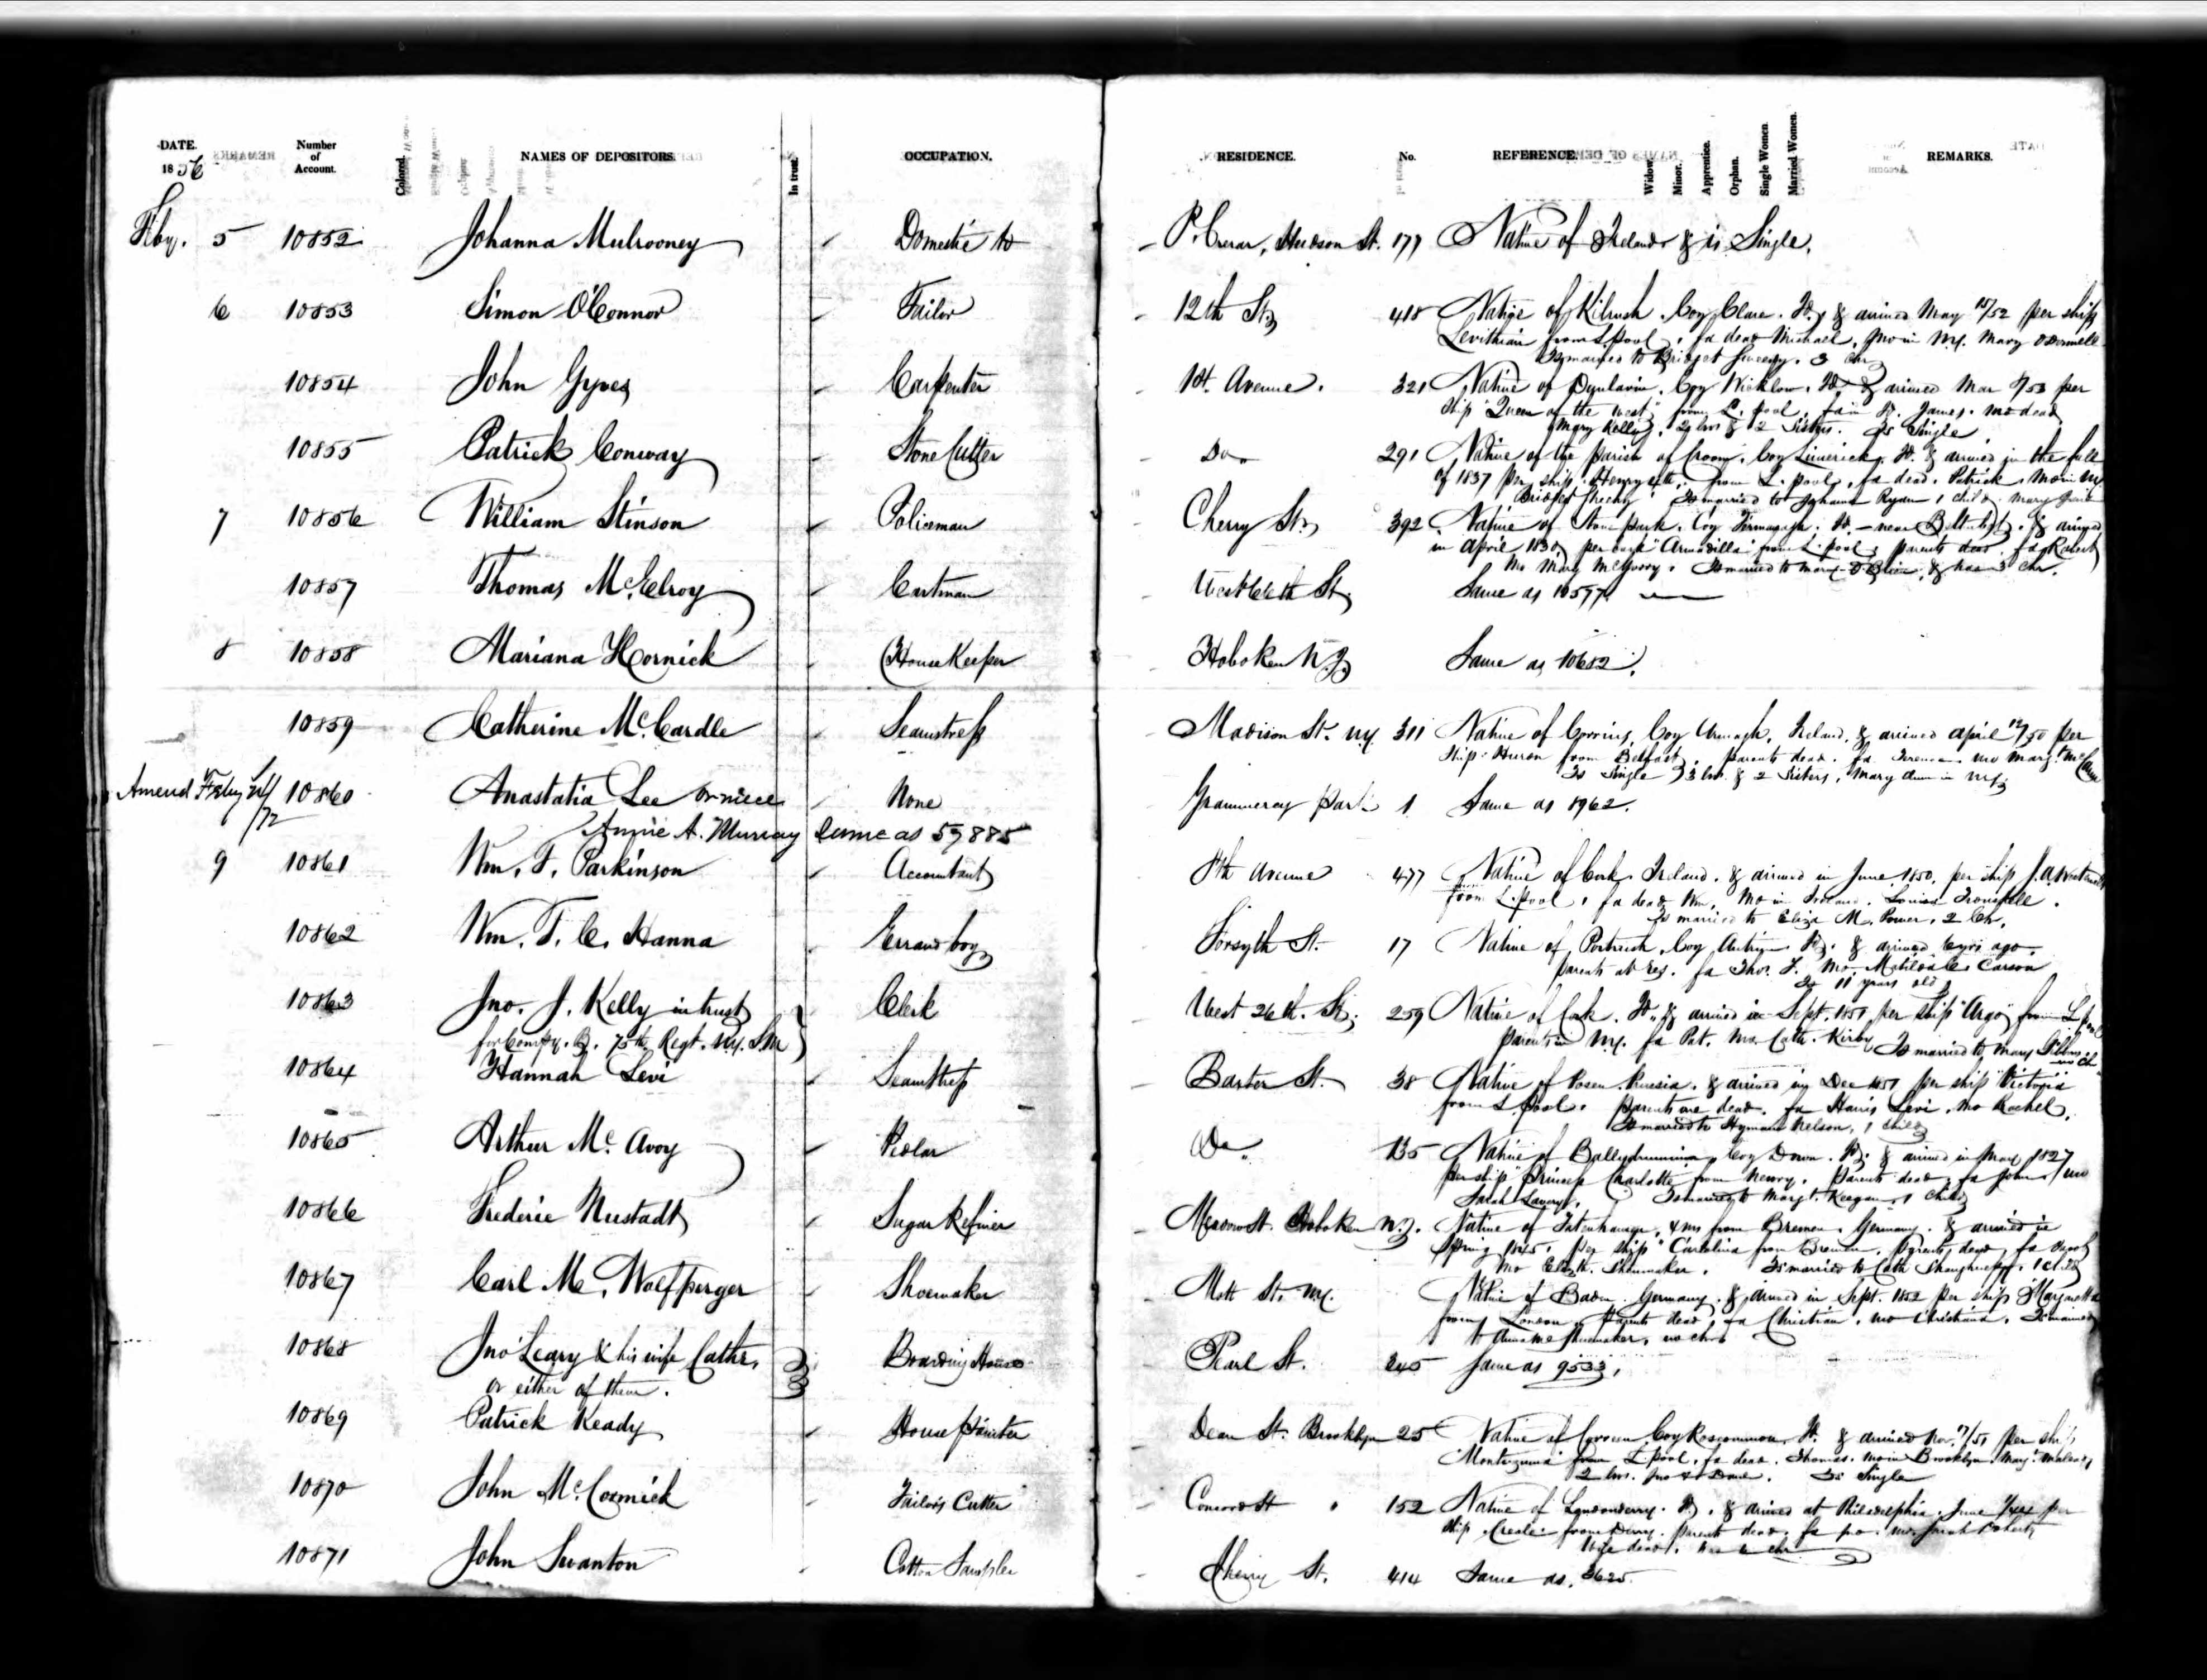 DATE. 1856 Number of Account. Colored. NAMES OF DEPOSITORS. In trust. OCCUPATION. RESIDENCE. No. REFERENCE. Widow. Minor. Apprentice. Orphan. Single Women. Married Women. REMARKS.
Feby. 5 10852 Johanna Mulrooney Domestic to P. Crerar, Hudson St. 177 Native of Ireland & is Single.
6 10853 Simon O'Connor Tailor 12th St. 418 Native of Kilrush, Coy Clare. Id. & arrived May 15/52 per ship
Levithian from L.pool, fa dead Michael, mo in N.Y. Mary O'Donnell
Is married to Bridget 3 chr
10854 John Gynes Carpenter 1st. Avenue. 321 Native of Dunlavin, Coy Wicklow. Id. & arrived Mar /53 per
Ship "Queen of the West" from L.pool, fa in Id. James. mo dead
Mary Kelly, 2 brs & 2 Sisters. Is Single
10855 Patrick Conway Stone Cutter Do 291 Native of the parish of Croom, Coy Limerick. Id. & arrived in the fall
of 1837 per ship Henry 4th, from L.pool, fa dead. Patrick, Mo in N.Y.
Bridget Sheehy. Is married to Johana Ryan 1 child. Mary
7 10856 William Stinson Policeman Cherry St. 392 Native of Stone park, Coy Fermanagh. Id. - near & arrived
in April 1830, per bark "Armadilla" from L.pool, parents dead. fa Robert
Mo Mary McGivory. Is married to Mary & has 3 chr.
10857 Thomas McElroy Cartman West St. Same as 10577.
8 10858 Mariana Hornick House Keeper Hoboken N.J. Same as 10682.
10859 Catherine McCardle Seamstress Madison St. N.Y. 311 Native of Coy Armagh, Ireland, & arrived April 12/50 per
Ship Huron from Belfast, parents dead. fa Terence mo Margt.
Is Single 3 brs. & 2 Sisters, Mary Ann in N.Y.
Amend Feby 24/72 10860 Anastatia Lee or niece None Grammercy Park 1 Same as 1962.
Annie A. Murray Same as 59885
9 10861 Wm. F. Parkinson Accountant 8th Avenue 477 Native of Cork, Ireland. & arrived in June 1850, per ship J.A. Westervelt
from L.pool, fa dead, Wm, Mo in Ireland. Louisa
Is married to Eliza M. Power, 2 Chr.
10862 Wm. T. C. Hanna Errand boy Forsyth St. 17 Native of Portrush, Coy Antrim. Id. & arrived 6 yrs ago.
parents at res. fa Thos. F. Mo. Matilda C. Carson
Is 11 years old
10863 Jno. J. Kelly in trust Clerk West 26th. St. 259 Native of Cork. Id. & arrived in Sept. 1851 per ship "Argo" from L.pool
for Compy. B. 75th. Regt. N.Y. S.M. parents in N.Y. fa Pat. Mo. Cath. Kirby Is married to Mary Gibbons
no ch
10864 Hannah Levi Seamstress Baxter St. 38 Native of Posen, Prussia. & arrived in Dec 1851 per ship "Victoria"
from L.pool. Parents are dead. fa Harris Levi. mo Rachel.
Is married to Hyman Nelson, 1 child
10865 Arthur McAvoy Pedlar Do 135 Native of Coy Down. Id. & arrived in May 1827
per ship "Princess Charlotte" from Newry. Parents dead, fa John, mo
Sarah Lavery. Is married to Margt. Keegan, 1 child
10866 Frederic Nustadt Sugar Refiner Meadow St. Hoboken N.J. Native of 4 ms from Bremen, Germany. & arrived in
Spring 1845. per ship "Carolina from Bremen. Parents dead, fa
mo Elizth. Shumaker. Is married to Cath Shaughnessy. 1 child
10867 Carl M. Wolfsperger Shoemaker Mott St. N.Y. Native of Baden Germany. & arrived in Sept. 1852 per ship "Margaretta
from London. Parents dead, fa Christian, mo Christiana. Is married
to Shumaker, no chr
10868 Jno Leary & his wife Cathr. Boarding House Pearl St. 245 Same as 9533.
or either of them.
10869 Patrick Keady House Painter Dean St. Brooklyn 25 Native of Coy Roscommon. Id. & arrived Nov. 17/51 per ship
Montezuma from L.pool, fa dead. Thomas. mo in Brooklyn. Margt.
2 brs. Is Single
10870 John McCormick Tailor's Cutter Concord St " 152 Native of Londonderry. Id. & arrived at Philadelphia June per
ship Creole from Derry. parents dead. fa Jno. mo. Sarah Doherty
Wife dead.
10871 John Swanton Cotton Sampler Cherry St. 414 Same as. 3625.